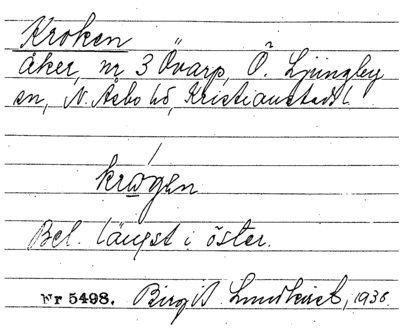 Kroken
åker, nr 3 Övarp, Ö. Ljungby
sn, N. Åsbo hd, Kristianstads l.
krωgen
Bel. längst i öster.
Nr 5498. Birgit Lundkvist, 1936.